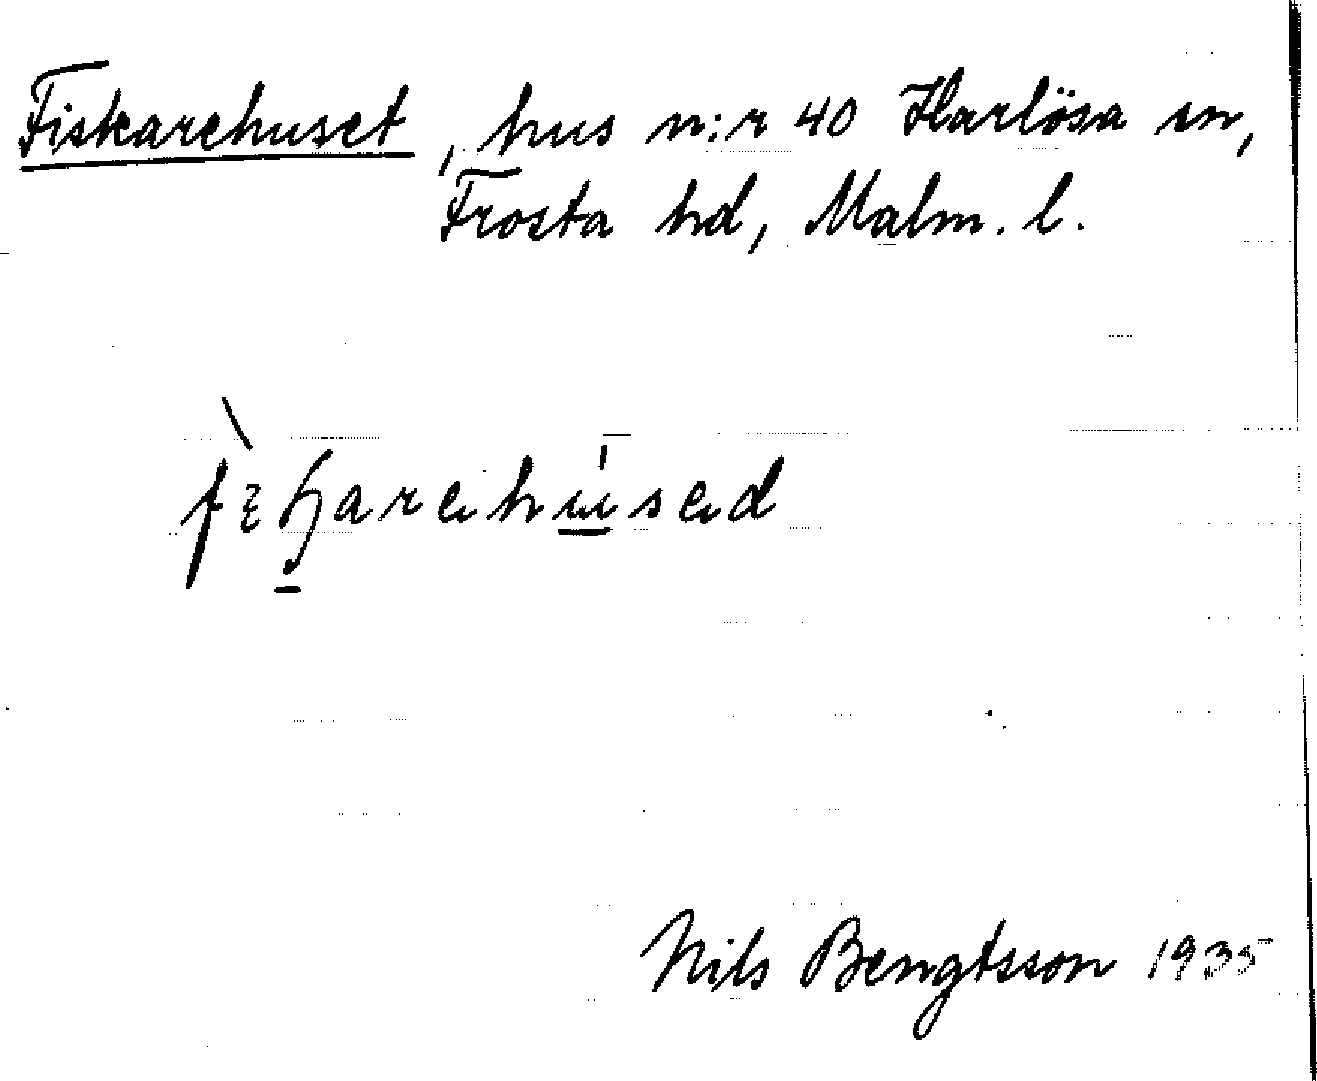 Fiskarehuset, hus n:r 40 Harlösa sn,
Frosta hd, Malm. l.
Nils Bengtsson 1935